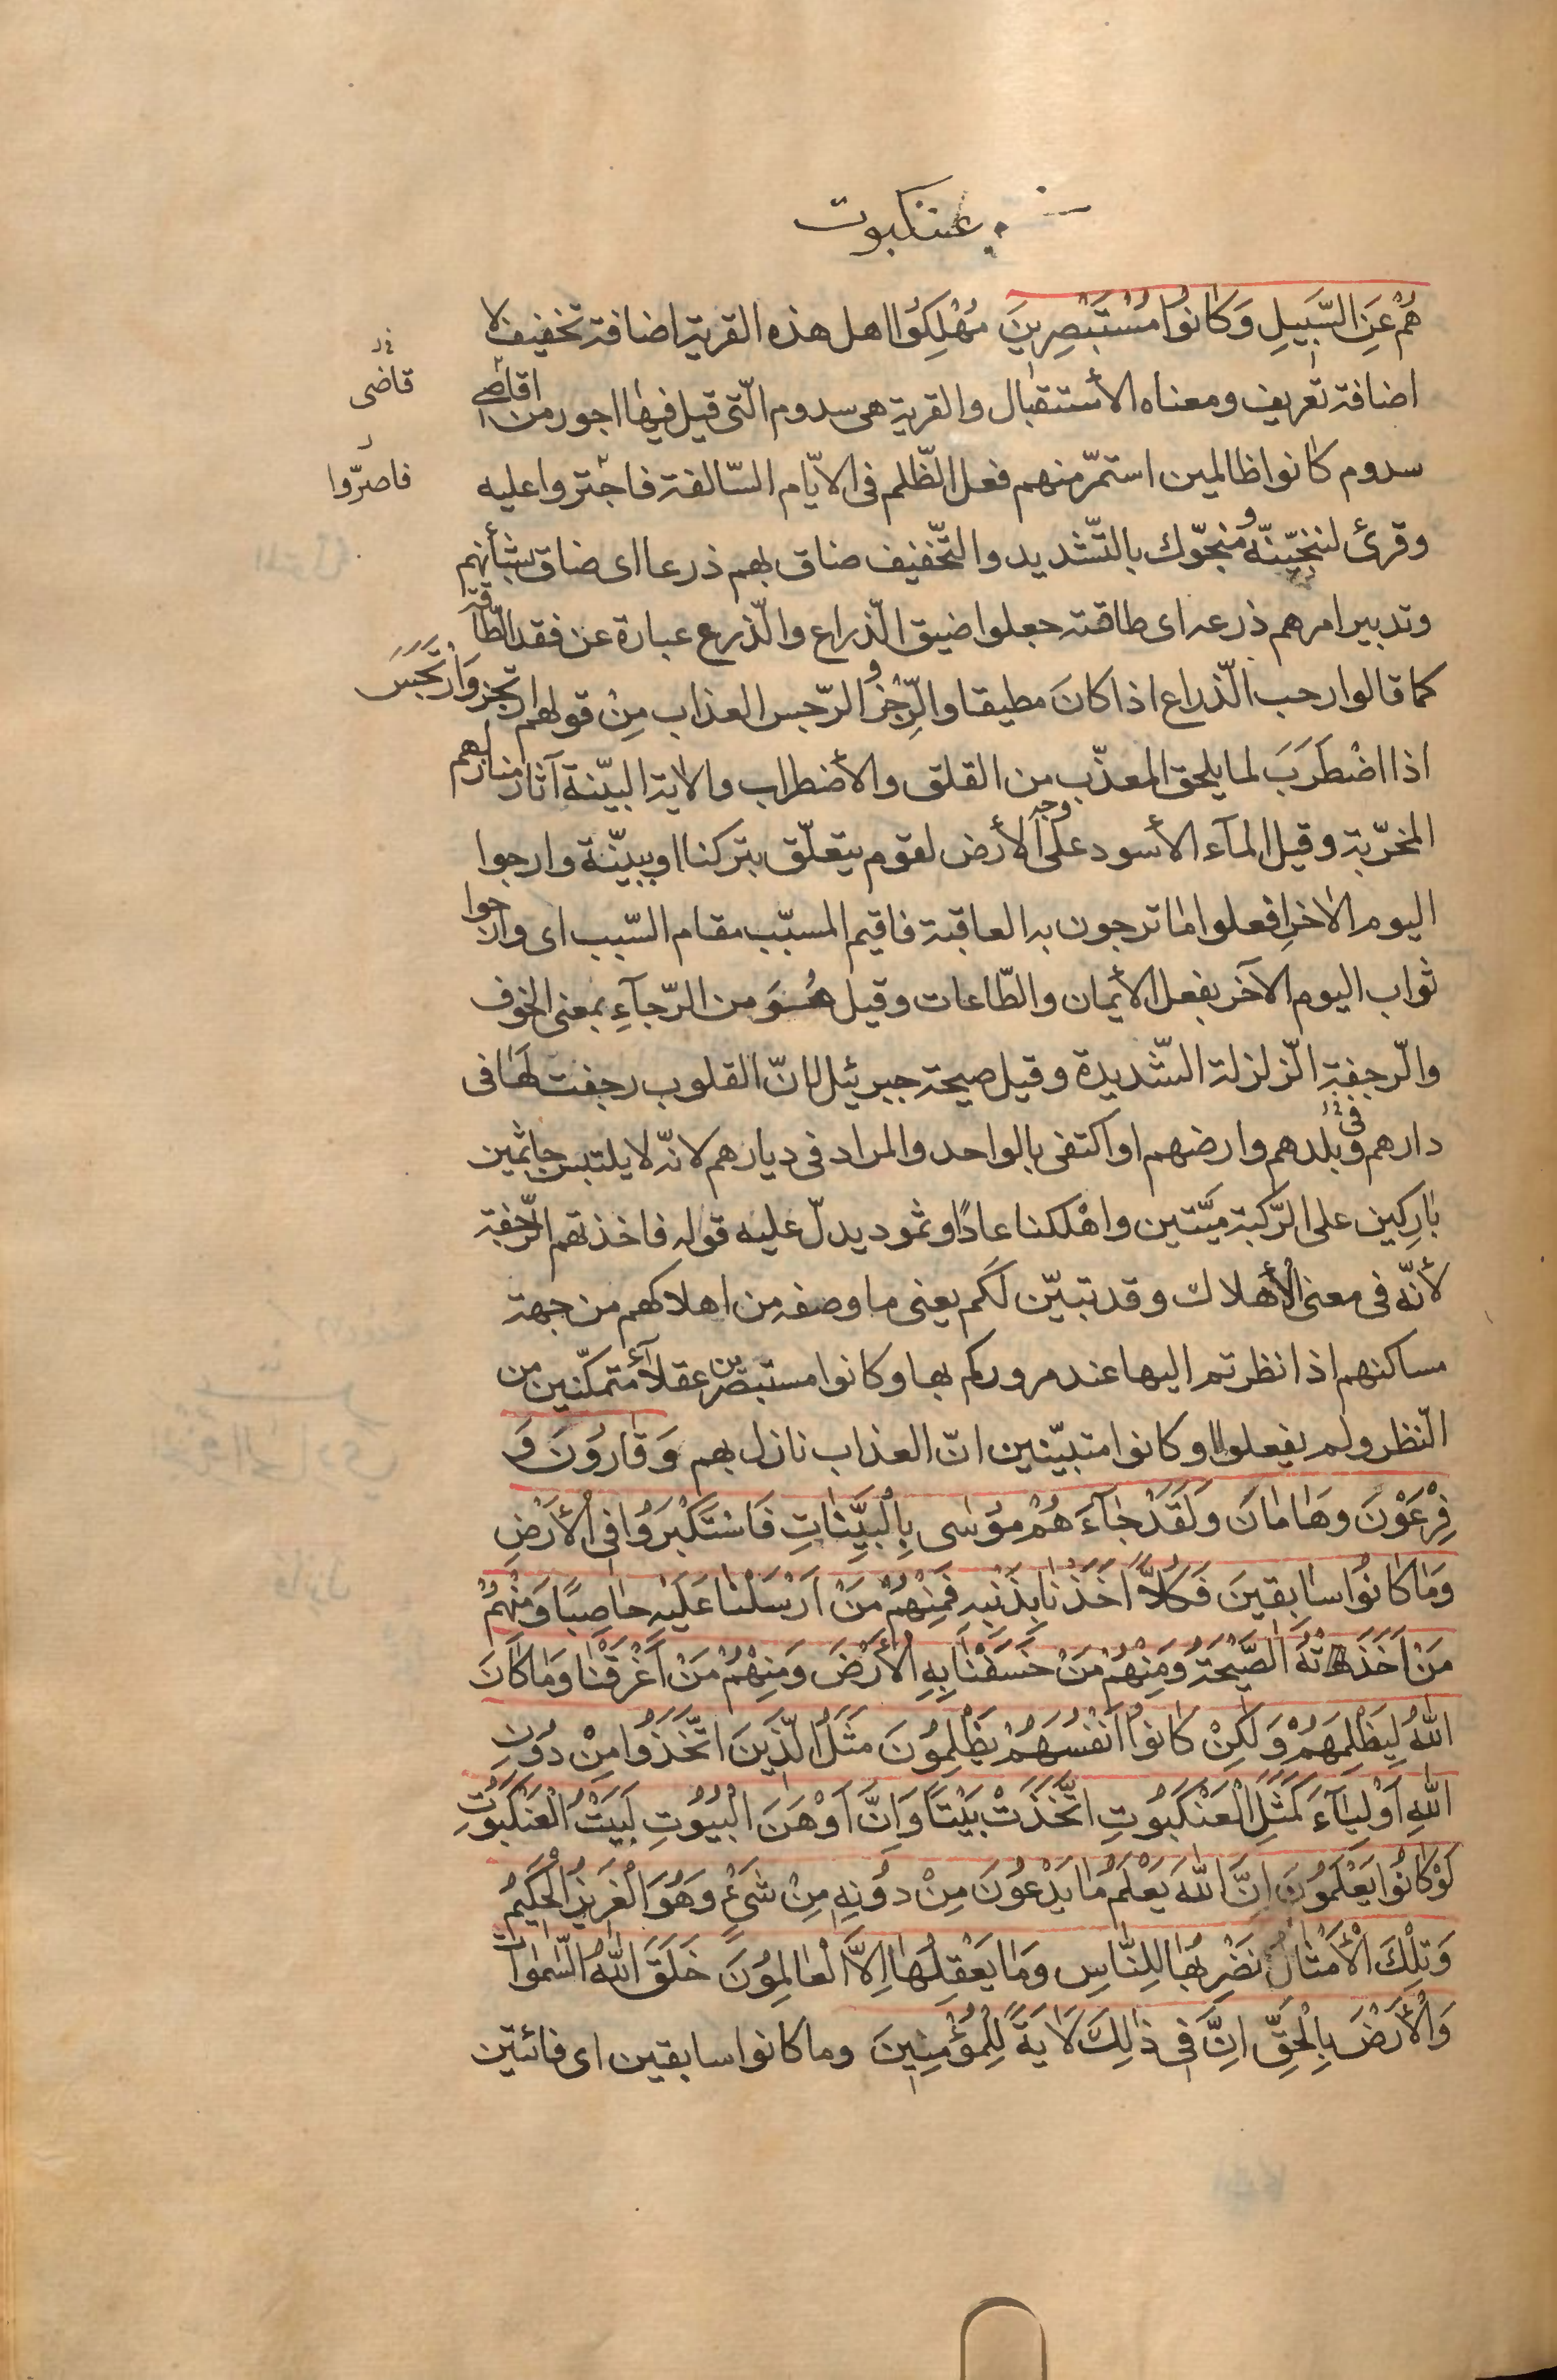 عنكبوت
هُمْ عَنِ السَّبِيلِ وَكَانُوا مُسْتَبْصِرِينَ مُهْلِكُوا اهل هذه القرية اضافة تخفيف لا
اضافة تعريف ومعناه الأستقبال والقرية هى سدوم الّتى قيل فيها اجور من اقاضى
قاضى
سدوم كانوا ظالمين استمرّ منهم فعل الظّلم فى الايّام السّالفة فاجتروا عليه
فاصرّوا
وقرئ لننجّينّه و منجّوك بالتّشديد والتّخفيف ضاق بهم ذرعا اى ضاق بشأنهم
وتدبير امرهم ذرعه اى طاقته جعلوا ضيق الذّراع والذّرع عبارة عن فقد الطّاقة
كما قالوا رحب الذّراع اذا كانَ مطيقا والرِّجْز و الرّجس العذاب مِنْ قولهم ارتجز وَارْتَجَسَ
اذا اضْطَرَبَ لما يلحق المعذّب من القلق والأضطراب والاية البيّنة آثار منازلهم
المخرّبة وقيل المآء الأسود على وجه الأرض لقوم يتعلّق بتركنا او ببيّنة وارجوا
اليوم الاخرِ افعلوا ما ترجون به العاقبة فاقيم المسبّب مقام السّبب اى وارجوا
ثواب اليوم الآخر بفعل الأيمان والطّاعات وقيل هُوَ من الرّجآءِ بمعنى الخوف
والرّجفة الزّلزلة الشّديدة وقيل صيحة جبرئيل لانّ القلوب رجفت لها فى
دارهم و فى بلدهم وارضهم او اكتفى بالواحد والمراد فى ديارهم لانّه لا يلتبس جاثمين
بارِكين على الرّكبة ميّتين واهْلكنا عادًا وثمود يدلّ عليه قوله فاخذتهم الرّجفة
لأنّه فى معنى الأهلاك وقد تبيّن لكم يعنى ما وصفه من اهلاكهم من جهة
مساكنهم اذا نظرتم اليها عند مروركم بها وكانوا مستبصرين عقلآء متمكّنين من
النّظر ولم يفعلوا او كانوا متبيّنين انّ العذاب نازل بهم وَقَارُونَ وَ
فِرْعَوْنَ وَهَامَانَ وَلَقَدْ جَآءَهُمْ مُوسٰى بِالْبَيِّنَاتِ فَاسْتَكْبَرُوا فِى الْأَرْضِ
وَمَا كَانُوا سَابِقِينَ فَكُلًّا اَخَذْنَا بِذَنْبِهِ فَمِنْهُمْ مَنْ اَرْسَلْنَا عَلَيْهِ حَاصِبًا وَمِنْهُمْ
مَنْ اَخَذَتْهُ الصَّيْحَةُ وَمِنْهُمْ مَنْ خَسَفْنَا بِهِ الْأَرْضَ وَمِنْهُمْ مَنْ اَغْرَقْنَا وَمَا كَانَ
اللّٰهُ لِيَظْلِمَهُمْ وَلٰكِنْ كَانُوا اَنْفُسَهُمْ يَظْلِمُونَ مَثَلُ الَّذِينَ اتَّخَذُوا مِنْ دُونِ
اللّٰهِ اَوْلِيَآءَ كَمَثَلِ الْعَنْكَبُوتِ اتَّخَذَتْ بَيْتًا وَاِنَّ اَوْهَنَ الْبُيُوتِ لَبَيْتُ الْعَنْكَبُوتِ
لَوْ كَانُوا يَعْلَمُونَ اِنَّ اللّٰهَ يَعْلَمُ مَا يَدْعُونَ مِنْ دُونِهِ مِنْ شَىْءٍ وَهُوَ الْعَزِيزُ الْحَكِيمُ
وَتِلْكَ الْأَمْثَالُ نَضْرِبُهَا لِلنَّاسِ وَمَا يَعْقِلُهَا اِلَّا الْعَالِمُونَ خَلَقَ اللّٰهُ السَّمٰوَاتِ
وَالْأَرْضَ بِالْحَقِّ اِنَّ فِى ذٰلِكَ لَاٰيَةً لِلْمُؤْمِنِينَ وما كانوا سابقين اى فائتين